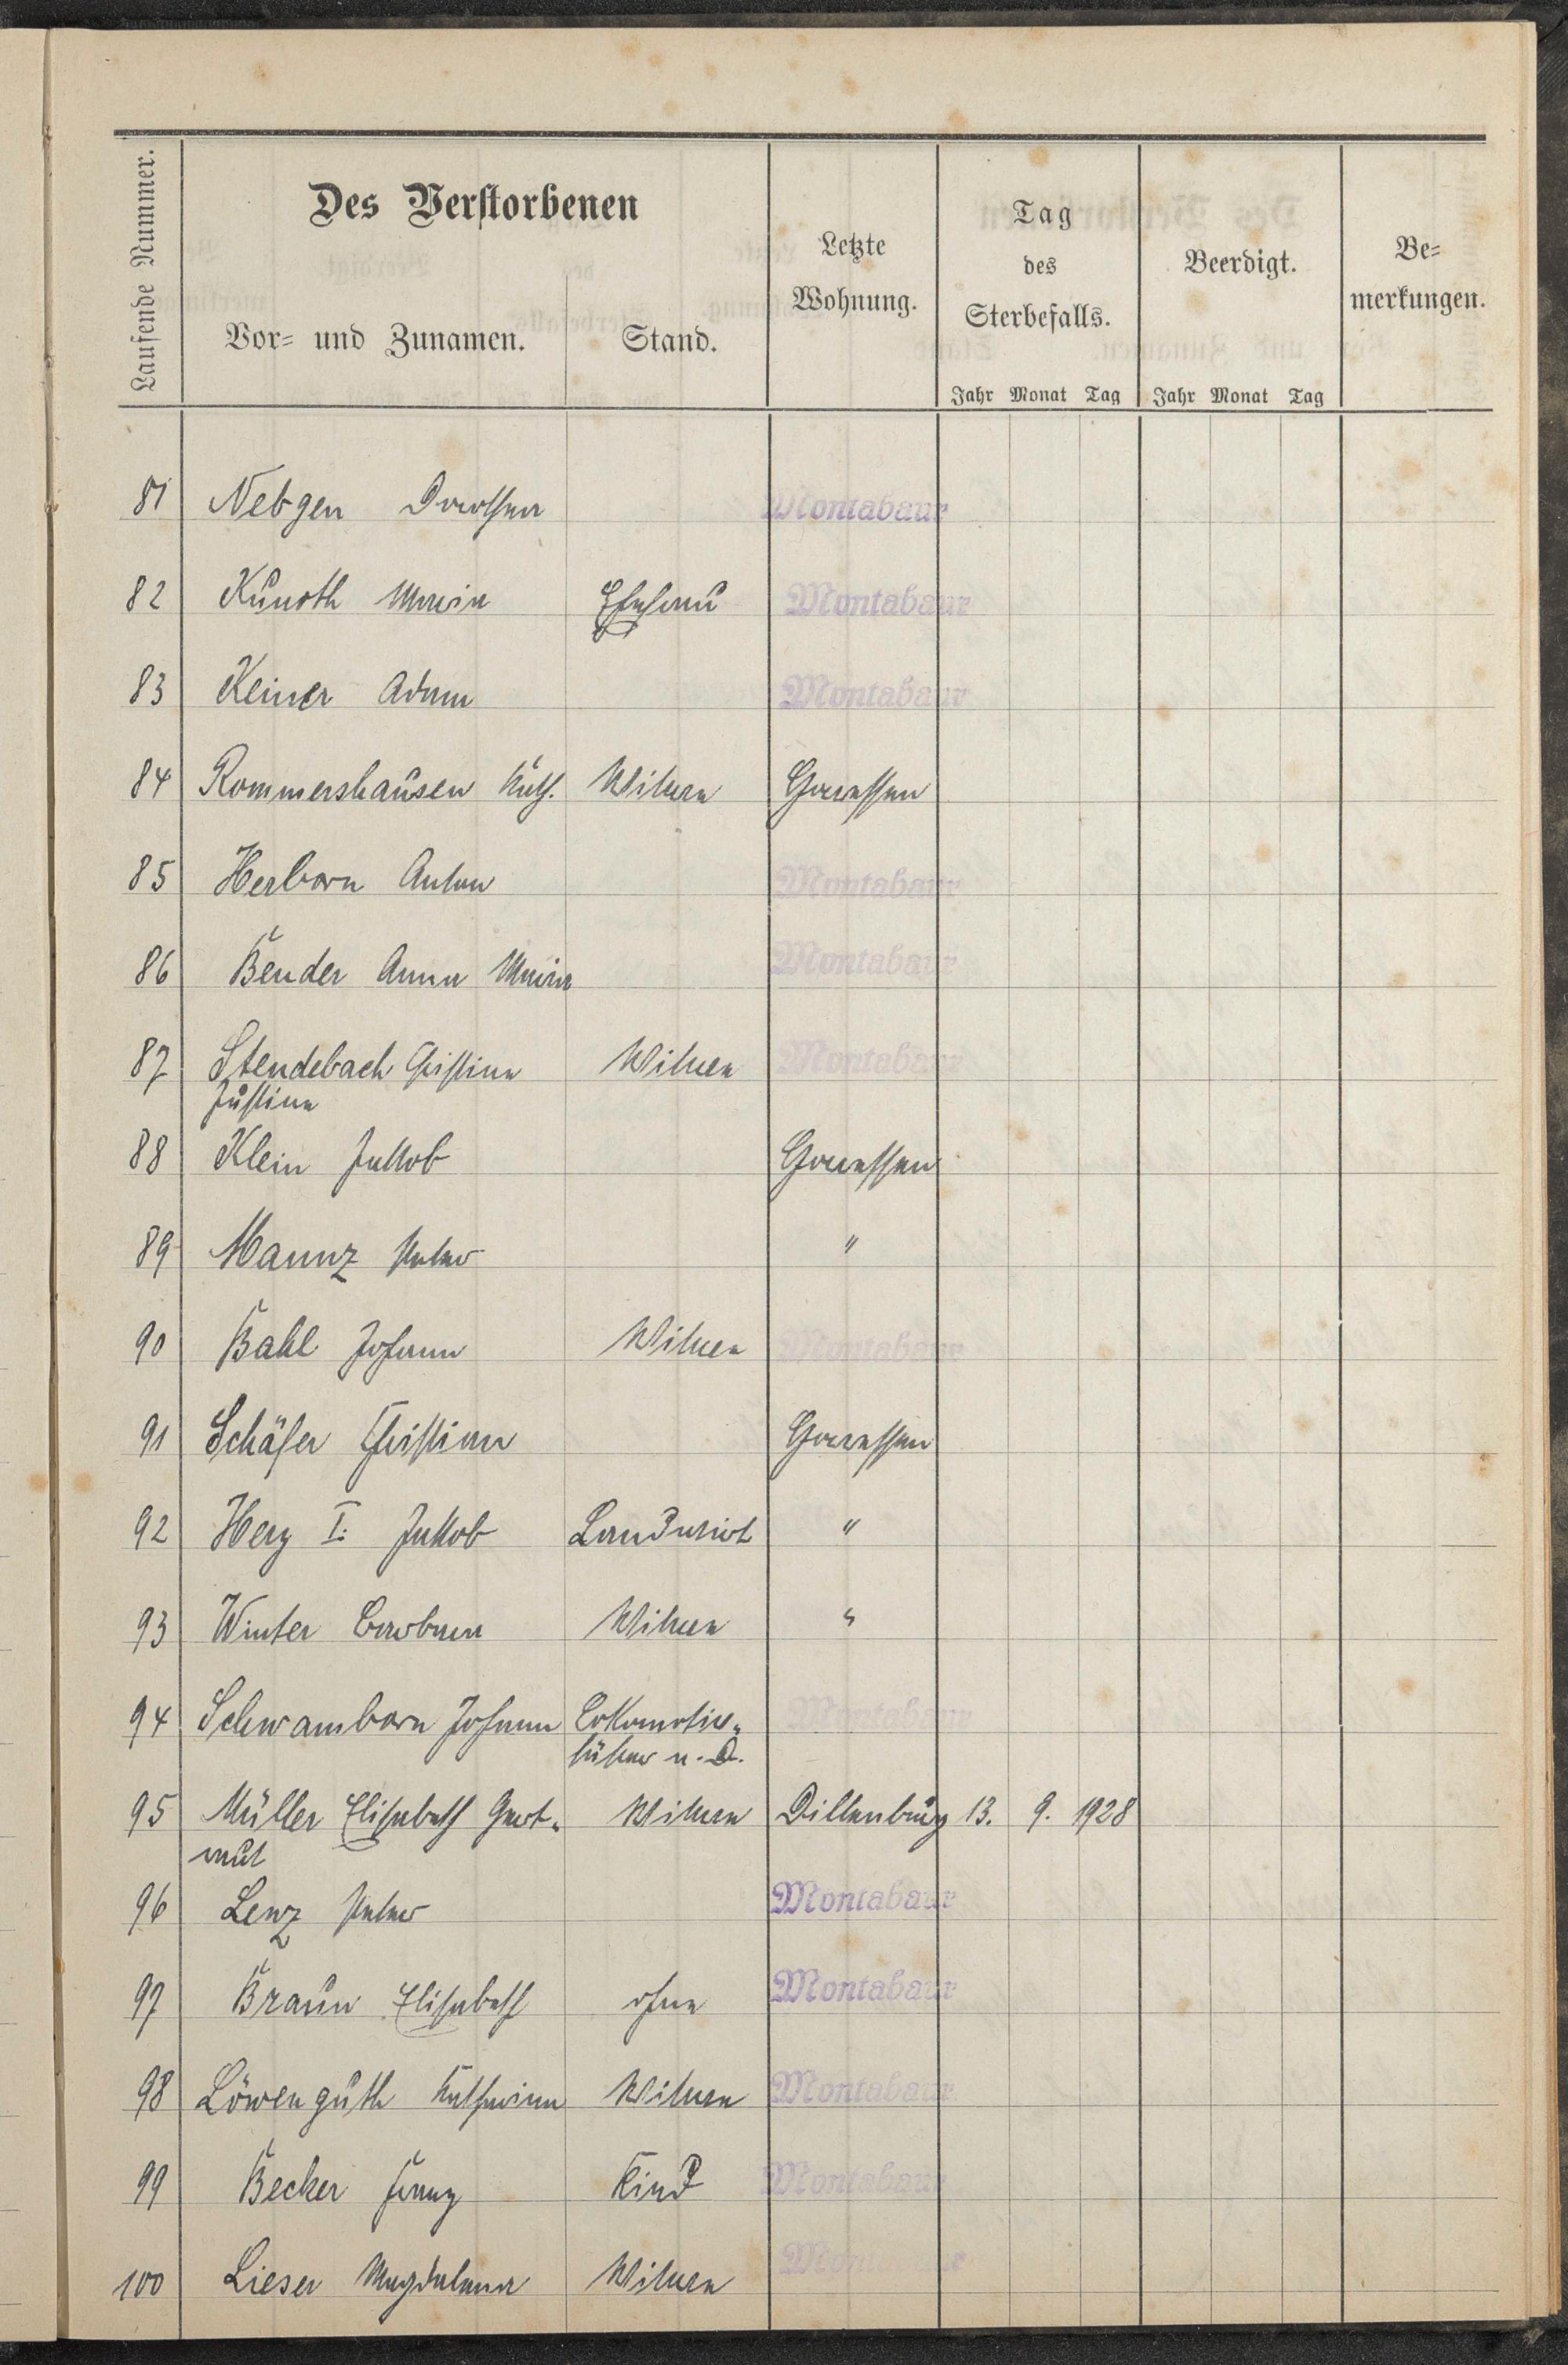 Laufende Nummer.
Des Verstorbenen
Vor- und Zunamen.
Stand.
Letzte
Wohnung.
Tag
des
Sterbefalls.
Beerdigt.
Be-
merkungen.
Jahr Monat Tag Jahr Monat Tag
81 Nebgen Dorothea Montabaur
82 Kunoth Maria Ehefrau Montabaur
83 Keiner Adam Montabaur
84 Rommershausen Kath. Witwe Horressen
85 Herborn Anton Montabaur
86 Bender Anna Maria Montabaur
87 Stendebach Christine Witwe Montabaur
Justine
88 Klein Jakob Horressen
89 Mannz Peter "
90 Bahl Johann Witwer Montabaur
91 Schäfer Christian Horressen
92 Herz I. Jakob Landwirt "
93 Winter Barbara Witwe "
94 Schwamborn Johann Lokomotiv- Montabaur
führer a. D.
95 Müller Elisabeth Gert- Witwe Dillenburg 13. 9. 1928
raut
96 Lenz Peter Montabaur
97 Braun Elisabeth ohne Montabaur
98 Löwenguth Katharina Witwe Montabaur
99 Becker Franz Kind Montabaur
100 Lieser Magdalena Witwe Montabaur